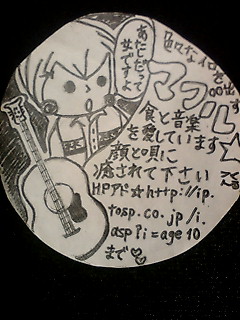 あたしだって
女ですよ
色々なイロを
出す
マブル☆
食と音楽
を愛しています
顔と唄に
癒されて下さい
HPアド☆http://ip.
tosp.co.jp/i.
asp?i=age10
まで♡